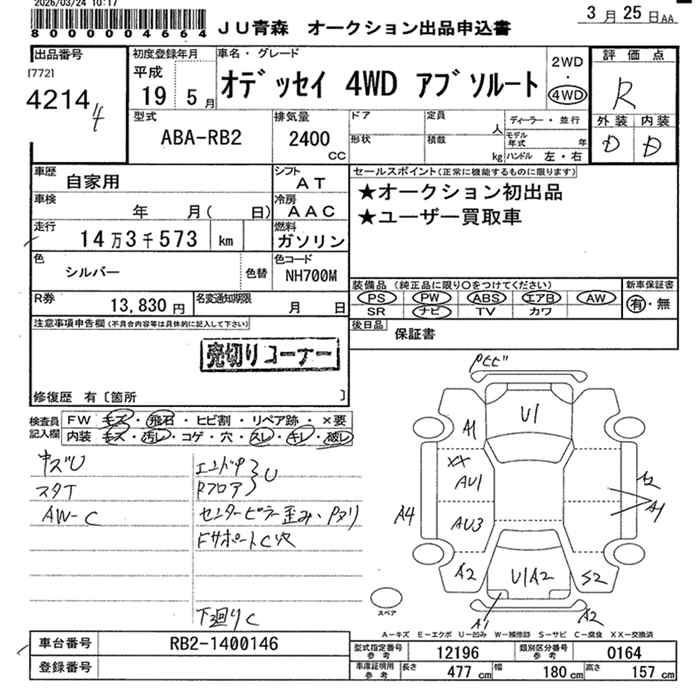 2026/03/24 10:17
8000004664
JU青森 オークション出品申込書
3月25日AA
出品番号
[772]
4214 4
初度登録年月
平成
19 5月
車名・グレード
オデッセイ 4WD アブソルート
2WD
・
4WD
評価点
R
外装 内装
D D
型式
ABA-RB2
排気量
2400
CC
ドア
形状
定員
人
積載
kg
ディーラー・並行
モデル
年式 年
ハンドル 左・右
車歴
自家用
シフト
AT
車検
年 月( 日)
冷房
AAC
走行
14万3千573 km
燃料
ガソリン
色
シルバー
色替
色コード
NH700M
R券
13,830円
名変通知期限
月 日
セールスポイント(正常に機能するものに限ります)
★オークション初出品
★ユーザー買取車
装備品 (純正品に限り○をつけてください)
PS PW ABS エアB AW
SR ナビ TV カワ
新車保証書
有・無
後日品
保証書
注意事項申告欄(不具合内容等は具体的に記入して下さい)
売切りコーナー
修復歴 有〔箇所 〕
検査員
記入欄
FW キズ・飛石・ヒビ割・リペア跡・×要
内装 キズ・汚レ・コゲ・穴・スレ・キレ・破レ
キズU
スタT
AW-C
エンドP
RフロアU
センターピラー歪み、Pヌリ
FサポートC穴
下廻りC
U1
A1
XX
AU1
AU3
A4
A2
A1
A2
U1A2
S2
A1
A2
スペア
A-キズ E-エクボ U-凹み W-補修跡 S-サビ C-腐食 XX-交換済
車台番号
RB2-1400146
登録番号
型式指定番号
参考
12196
類別区分番号
参考
0164
車庫証明用
参考
長さ 477 cm
幅 180 cm
高さ 157 cm